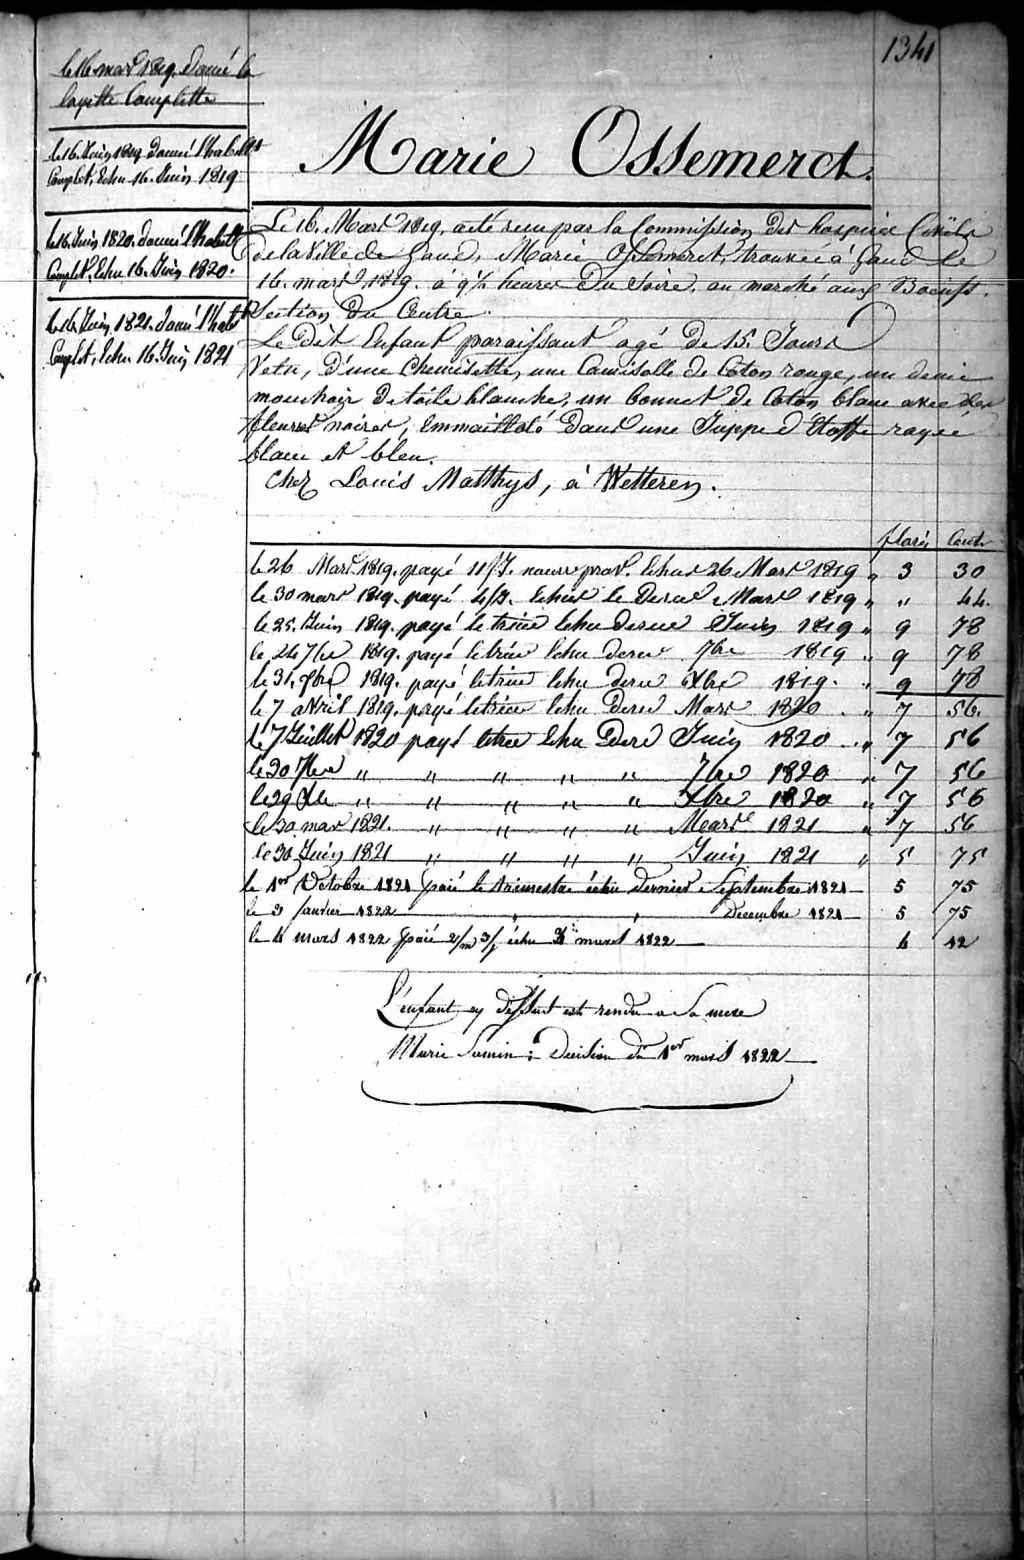 1341
le 16 mars 1819. donné la
layette Complette
le 16. Juin 1819 donné l'habillt
Complet, Echu 16. Juin 1819
le 16. Juin 1820. donné l'habillt
Complet, Echu 16. Juin 1820.
le 16. Juin, 1821. donné l'habt
Complet, Echu 16. Juin 1821
Marie Ossemerct.
Le 16. Mars 1819, a été reçu par la Commission des hospices Civils
de la Ville de Gand, Marie Ossemerct, trouvée à Gand le
16. mars 1819. à 9½ heures du Soire, au marché aux Boeufs.
Section du Centre.
Le Dit Enfant paraissant agé de 15. Jours
Vetu, d'une Chemisette, une Camisolle de Coton rouge, un demie
mouchoir de toile blanche, un bonnet de Coton blanc avec des
fleures noires, Emmailloté dans une Juppe d'Etoffe rayée
blanc et bleu.
Chez Louis Matthys, à Wetteren.
florins Cents
le 26 Mars 1819. payé 11/J. nourr prov. Echus 26 Mars 1819 " 3 30
le 30 mars 1819. payé 4/J. Echus le Derer Mars 1819 " " 44.
le 25. Juin 1819. payé le trice Echu derer Juin 1819 " 9 78
le 24 7bre 1819. payé le trice Echu derer 7bre 1819 " 9 78
le 31. Xbre 1819. payé le trice Echu derer Xbre 1819. " 9 78
le 7 avril 1819. payé le trice Echu derer Mars 1820 . " 7 56.
le 7 Juillet 1820 payé le trice Echu Derer Juin 1820 . " 7 56
le 30 7bre " " " " " 7bre 1820 " 7 56
le 29 Xbre " " " " " Xbre 1820 " 7 56
le 30 mars 1821. " " " " Mars 1821 " 7 56
le 30 Juin 1821 " " " " Juin 1821 " 5 75
le 1er Octobre 1821 paié le trimestre échu dernier Septembre 1821 5 75
le 3 Janvier 1822 " " Decembre 1821 5 75
le 4 mars 1822 paié 2/m 3/j échu 3 mars 1822 4 12
L'enfant cy dessus est rendu a Sa mere
Marie : Decision du 1er mars 1822